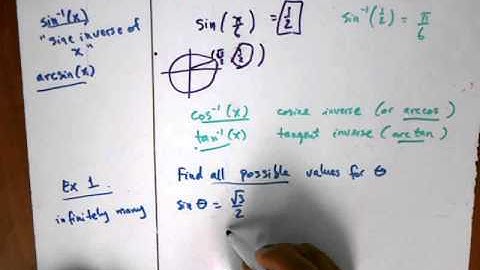 sin⁻¹(x)
"sine inverse of
x"
arcsin(x)
sin(π/6) = 1/2
(√3/2, 1/2)
sin⁻¹(1/2) = π/6
cos⁻¹(x) cosine inverse (or arccos)
tan⁻¹(x) tangent inverse (arctan)
Ex 1.
infinitely many
Find all possible values for θ
sin θ = √3/2